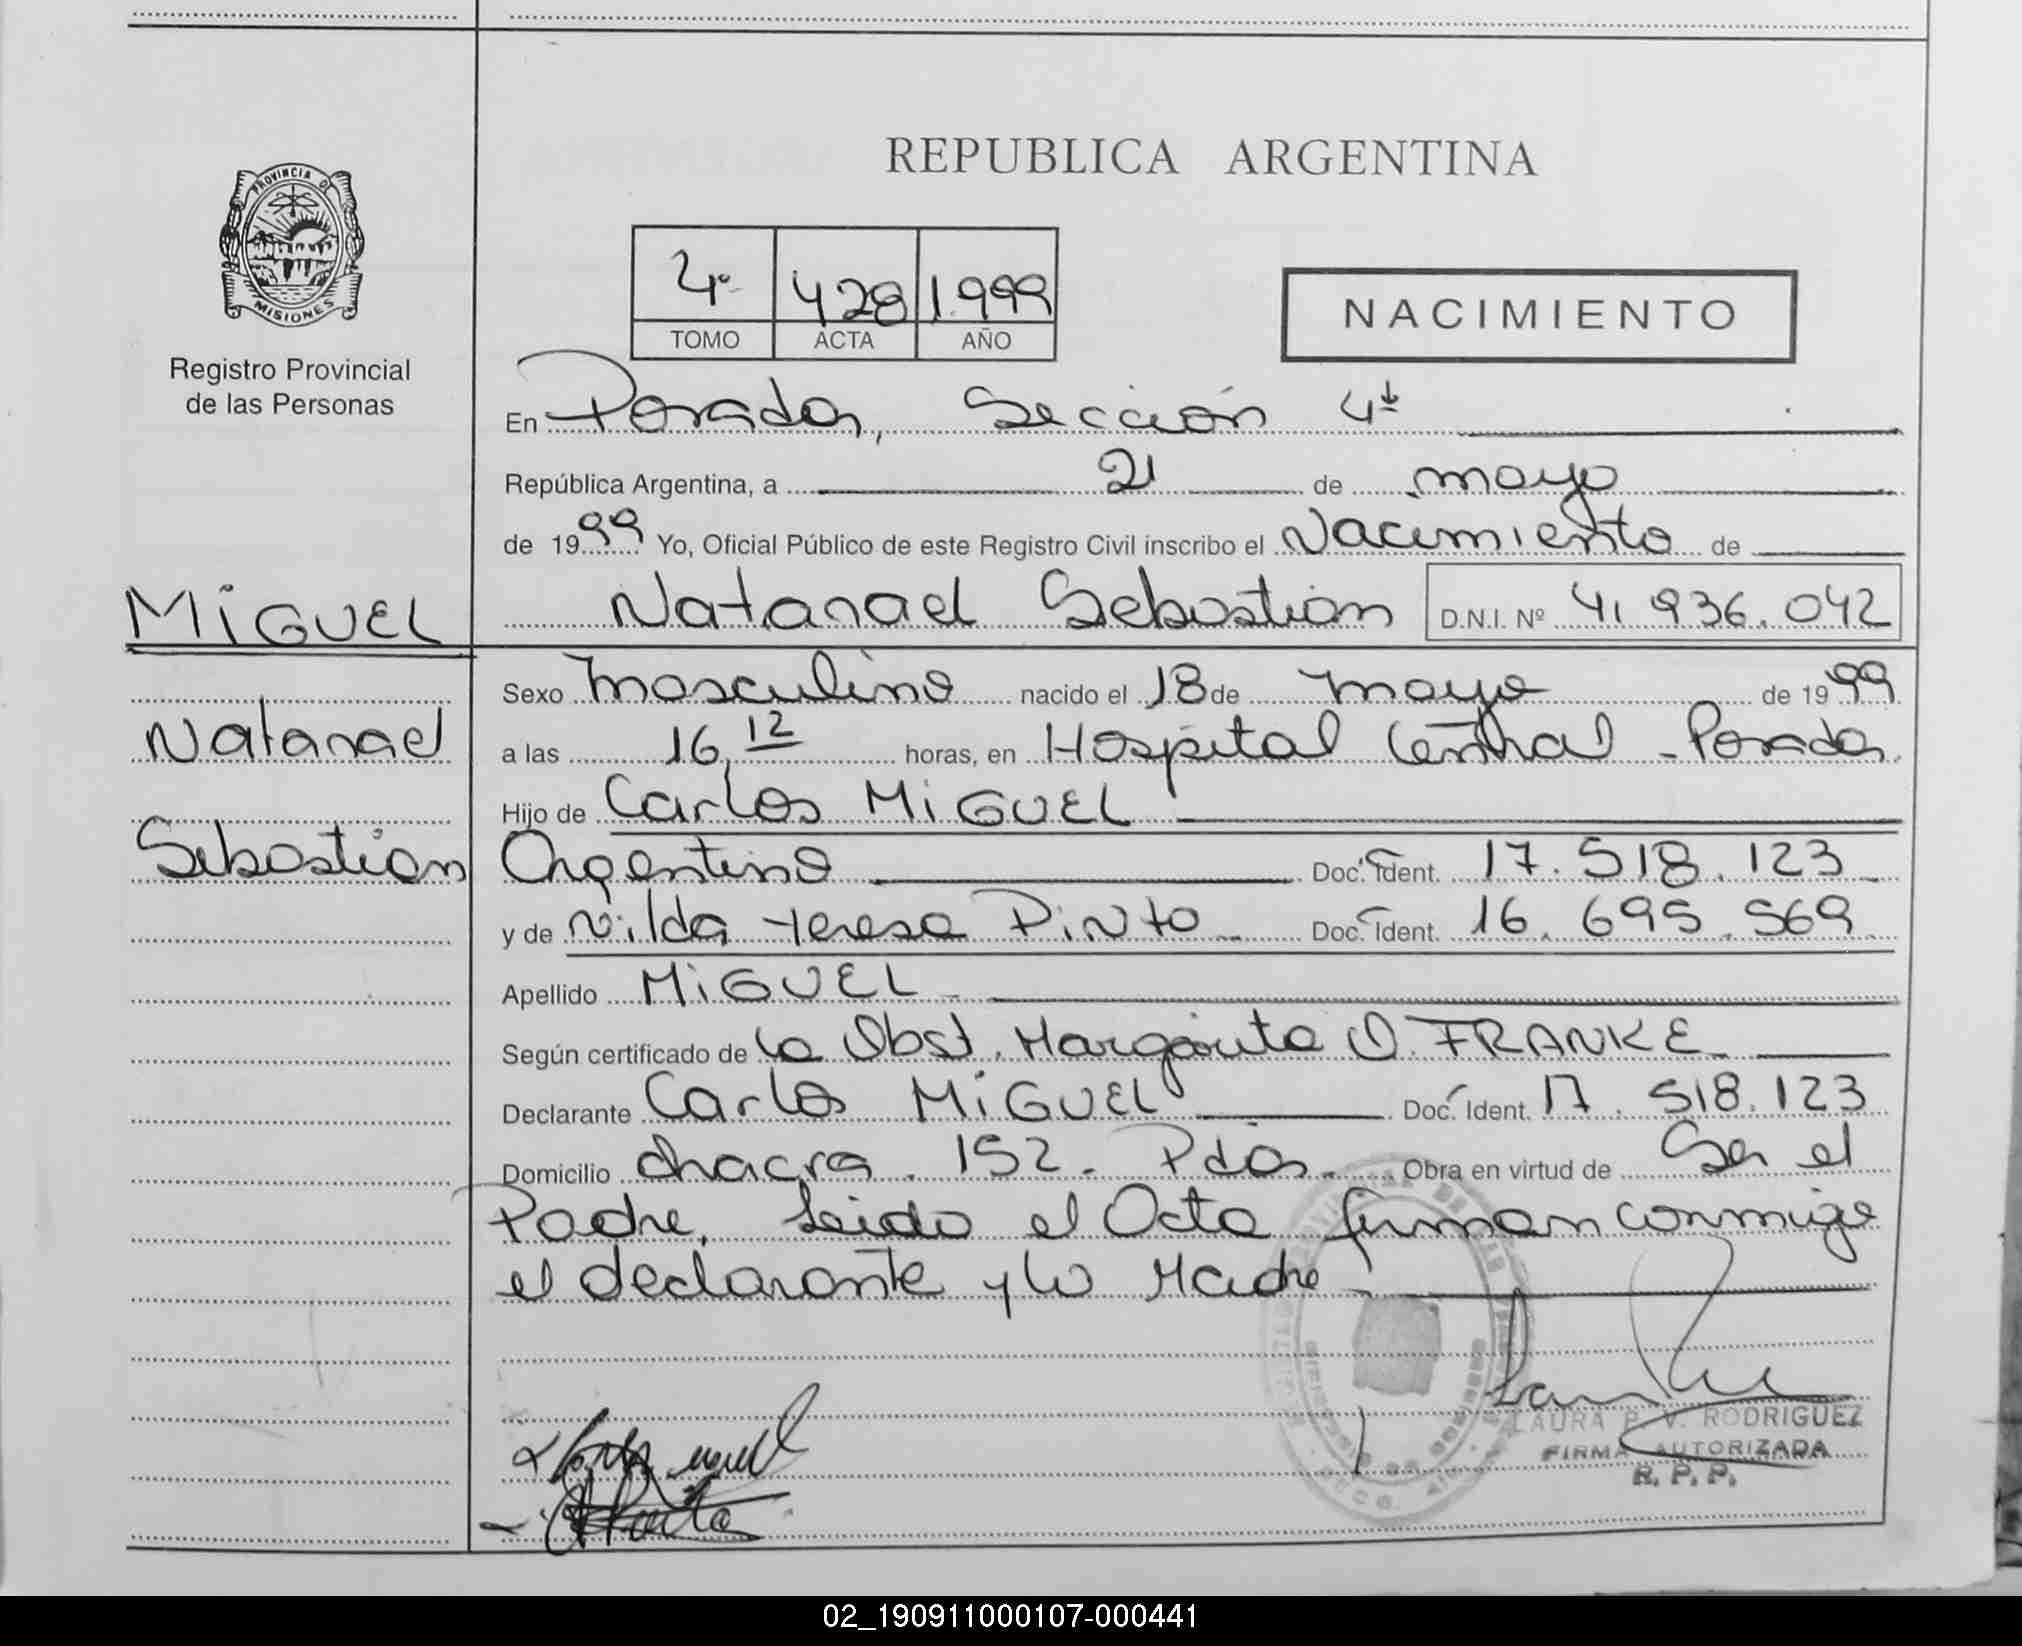 REPUBLICA ARGENTINA
PROVINCIA DE
MISIONES
Registro Provincial
de las Personas
4º 428 1.999
TOMO ACTA AÑO
NACIMIENTO
En Posadas, Sección 4ta
República Argentina, a 21 de mayo
de 1999 Yo, Oficial Público de este Registro Civil inscribo el Nacimiento de
MiGUEL
Natanael Sebastián D.N.I. Nº 41.936.042
Sexo masculino nacido el 18 de mayo de 1999
Natanael
a las 16,12 horas, en Hospital Central - Posadas.
Hijo de Carlos MiGUEL
Sebastián
Argentino Doc. Ident. 17.518.123
y de Nilda Teresa Pinto Doc. Ident. 16.695.569
Apellido MiGUEL
Según certificado de la Obst. Margarita O. FRANKE
Declarante Carlos MiGUEL Doc. Ident. 17.518.123
Domicilio chacra 152 - Pdas. Obra en virtud de Ser el
Padre, Leido el Acta firman conmigo
el declarante y la Madre
LAURA V. RODRIGUEZ
FIRMA AUTORIZADA
R. P. P.
02_190911000107-000441